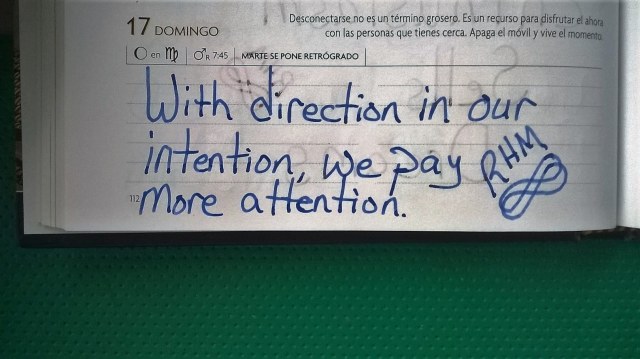 17 DOMINGO
Desconectarse no es un término grosero. Es un recurso para disfrutar el ahora
con las personas que tienes cerca. Apaga el móvil y vive el momento.
en ♍ ♂R 7:45 MARTE SE PONE RETRÓGRADO
With direction in our
intention, we pay
More attention.
RHM
112